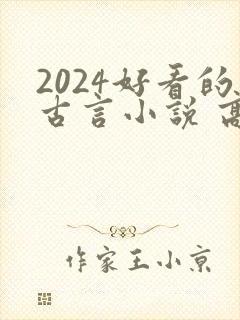 2024好看的
古言小说 高
作家王小京